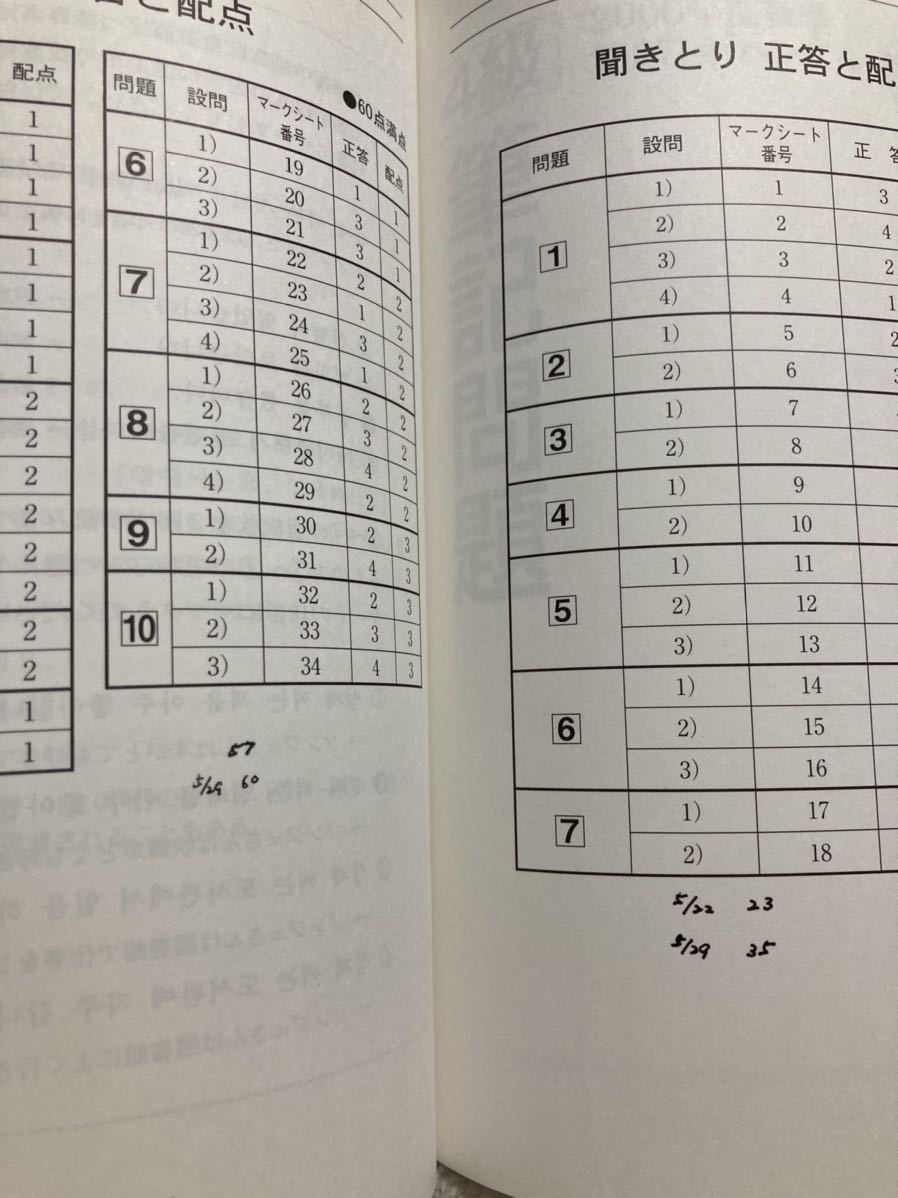 と配点
配点
1
1
1
1
1
1
1
1
2
2
2
2
2
2
2
2
1
1
●60点満点
問題 設問 マークシート番号 正答 配点
6 1) 19 1 1
2) 20 3 1
3) 21 3 1
7 1) 22 2 2
2) 23 1 2
3) 24 3 2
4) 25 1 2
8 1) 26 2 2
2) 27 3 2
3) 28 4 2
4) 29 2 2
9 1) 30 2 3
2) 31 4 3
10 1) 32 2 3
2) 33 3 3
3) 34 4 3
57
5/29 60
聞きとり 正答と配
問題 設問 マークシート番号 正答
1 1) 1 3
2) 2 4
3) 3 2
4) 4 1
2 1) 5 2
2) 6
3 1) 7
2) 8
4 1) 9
2) 10
5 1) 11
2) 12
3) 13
6 1) 14
2) 15
3) 16
7 1) 17
2) 18
5/22 23
5/29 35